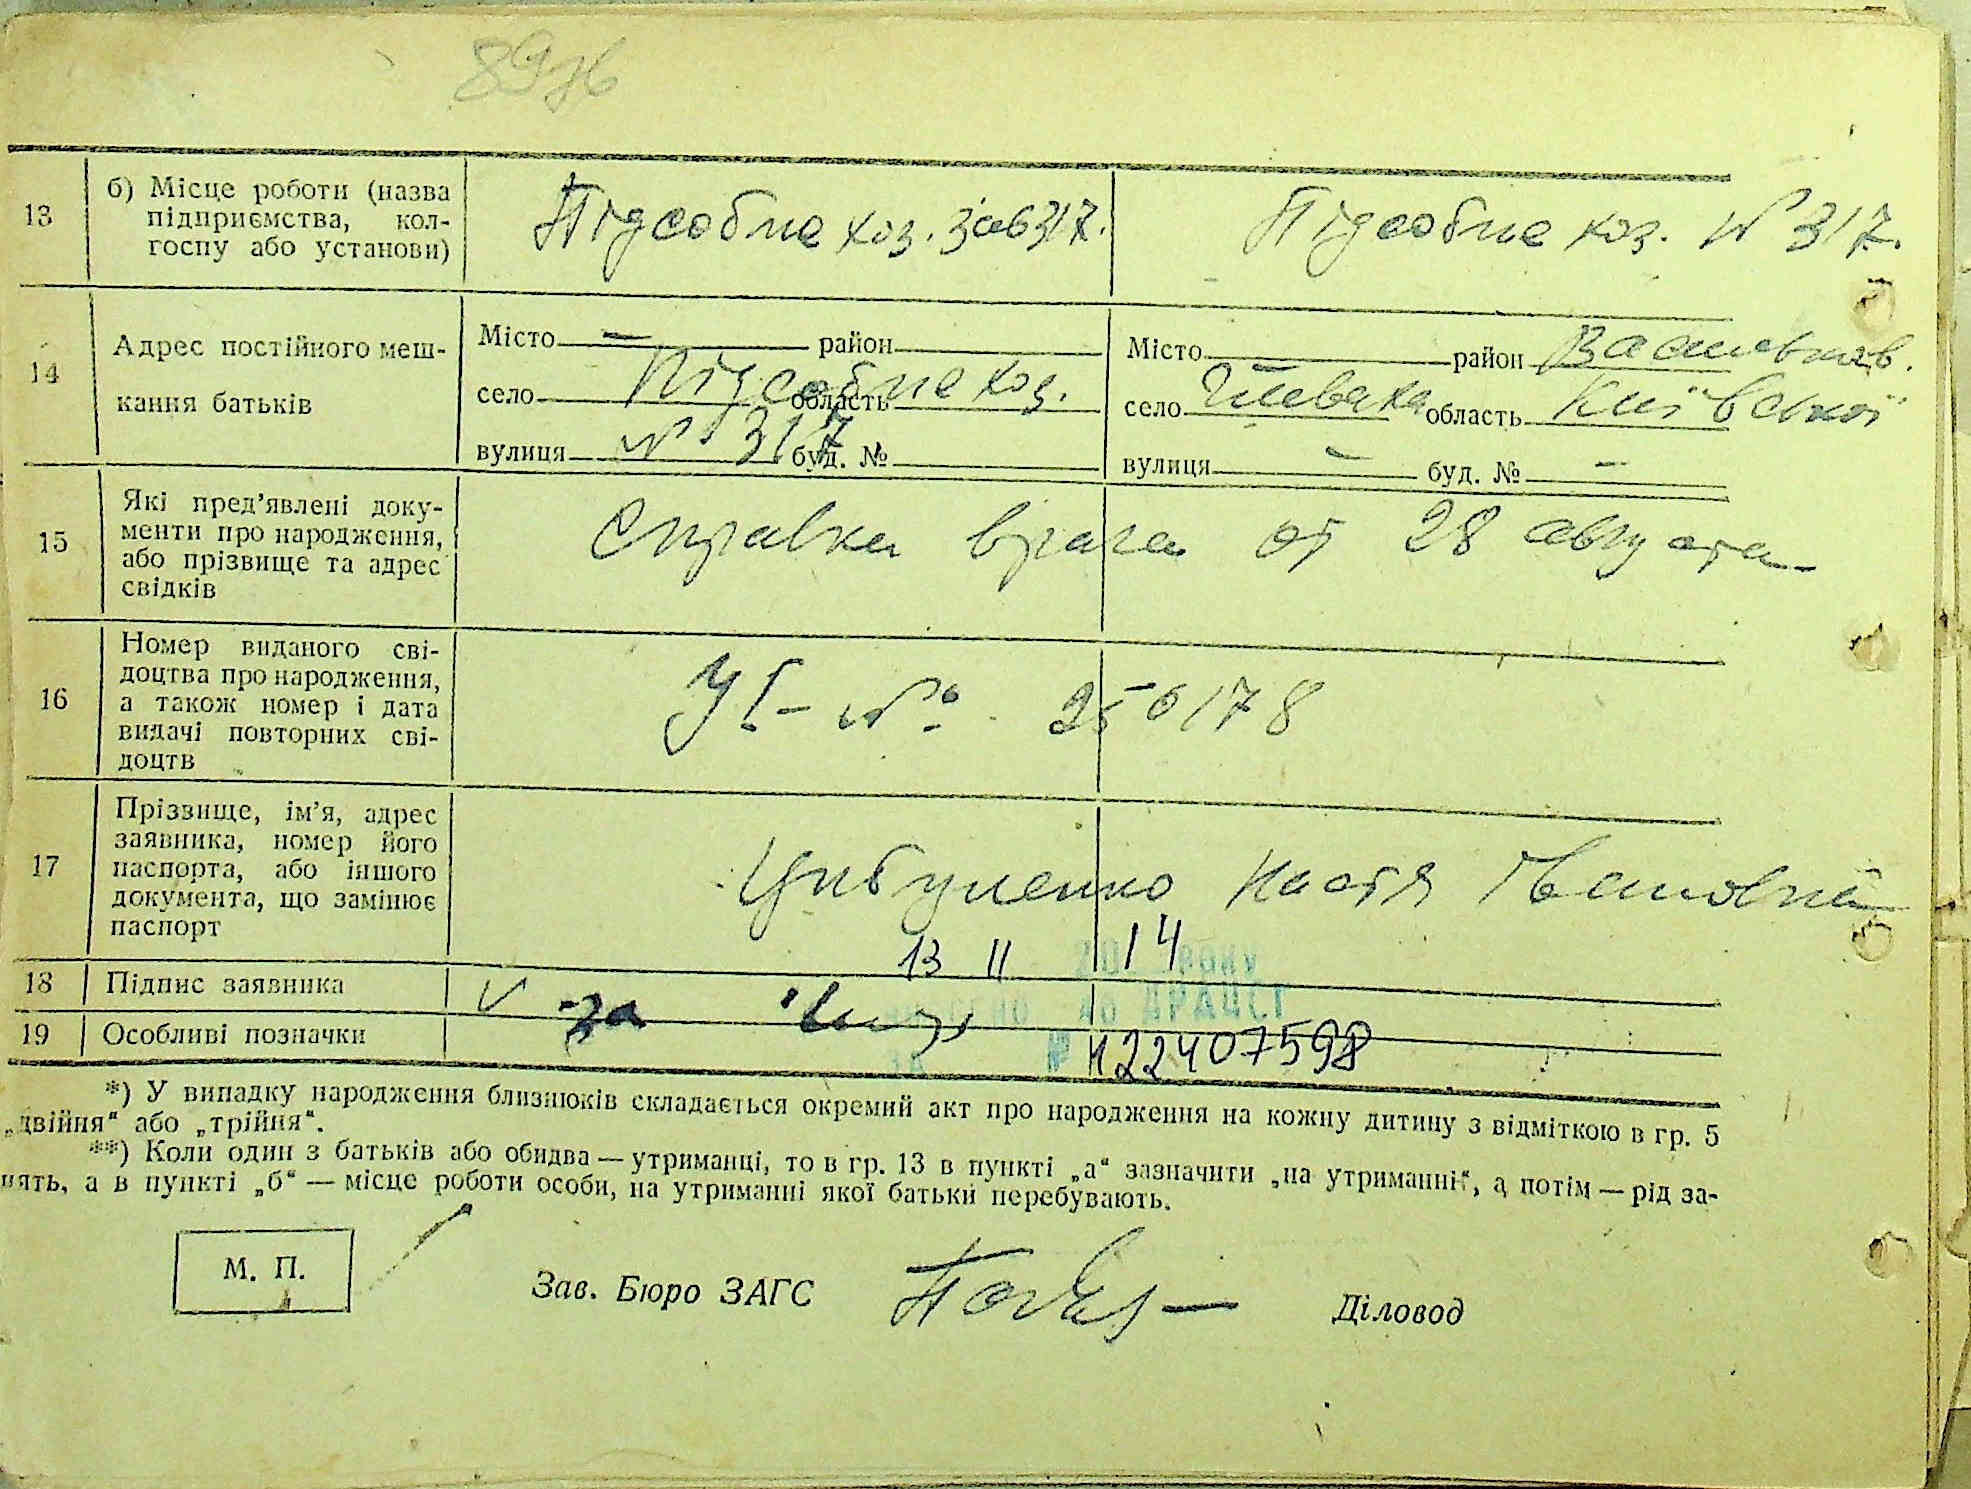 13
б) Місце роботи (назва
підприємства, кол-
госпу або установи)
Підсобне хоз. Зав 317.
Підсобне хоз. № 317.
14
Адрес постійного меш-
кання батьків
Місто — район
село Підсобне хоз. область
вулиця № 317 буд. №
Місто район Васильков.
село Глеваха область Київської
вулиця — буд. № —
15
Які пред’явлені доку-
менти про народження,
або прізвище та адрес
свідків
Справка врача от 28 августа
16
Номер виданого сві-
доцтва про народження,
а також номер і дата
видачі повторних сві-
доцтв
№ 256178
17
Прізвище, ім’я, адрес
заявника, номер його
паспорта, або іншого
документа, що замінює
паспорт
Цибуленко Настя Івановна
13 11 2014 року
18
Підпис заявника
внесено до ДРАЦСГ
19
Особливі позначки
за № 122407598
*) У випадку народження близнюків складається окремий акт про народження на кожну дитину з відміткою в гр. 5
„двійня“ або „трійня“.
**) Коли один з батьків або обидва — утриманці, то в гр. 13 в пункті „а“ зазначити „на утриманні“, а потім — рід за-
нять, а в пункті „б“ — місце роботи особи, на утриманні якої батьки перебувають.
М. П.
Зав. Бюро ЗАГС
Діловод